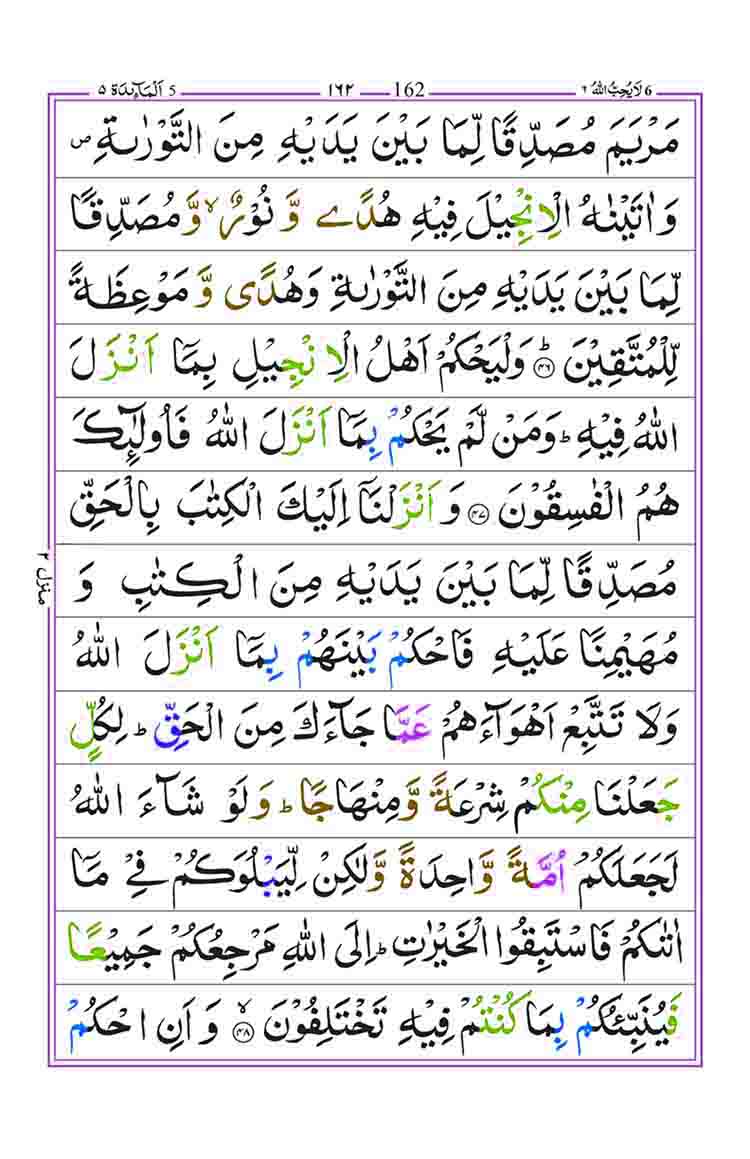 6 لَا يُحِبُّ اللّٰهُ ٦ 162 ١٦٢ 5 اَلْمَآئِدَة ٥
مَرْيَمَ مُصَدِّقًا لِّمَا بَيْنَ يَدَيْهِ مِنَ التَّوْرٰىةِ ص
وَاٰتَيْنٰهُ الْاِنْجِيْلَ فِيْهِ هُدًے وَّ نُوْرٌ ۙ وَّ مُصَدِّقًا
لِّمَا بَيْنَ يَدَيْهِ مِنَ التَّوْرٰىةِ وَهُدًى وَّ مَوْعِظَةً
لِّلْمُتَّقِيْنَ ؕ ﴿۴۶﴾ وَلْيَحْكُمْ اَهْلُ الْاِنْجِيْلِ بِمَاۤ اَنْزَلَ
اللّٰهُ فِيْهِ ؕ وَمَنْ لَّمْ يَحْكُمْ بِمَاۤ اَنْزَلَ اللّٰهُ فَاُولٰٓئِكَ
هُمُ الْفٰسِقُوْنَ ﴿۴۷﴾ وَ اَنْزَلْنَاۤ اِلَيْكَ الْكِتٰبَ بِالْحَقِّ
مُصَدِّقًا لِّمَا بَيْنَ يَدَيْهِ مِنَ الْكِتٰبِ وَ
مُهَيْمِنًا عَلَيْهِ فَاحْكُمْ بَيْنَهُمْ بِمَاۤ اَنْزَلَ اللّٰهُ
وَلَا تَتَّبِعْ اَهْوَآءَهُمْ عَمَّا جَآءَكَ مِنَ الْحَقِّ ؕ لِكُلٍّ
جَعَلْنَا مِنْكُمْ شِرْعَةً وَّمِنْهَاجًا ؕ وَلَوْ شَآءَ اللّٰهُ
لَجَعَلَكُمْ اُمَّةً وَّاحِدَةً وَّلٰكِنْ لِّيَبْلُوَكُمْ فِيْ مَاۤ
اٰتٰىكُمْ فَاسْتَبِقُوا الْخَيْرٰتِ ؕ اِلَى اللّٰهِ مَرْجِعُكُمْ جَمِيْعًا
فَيُنَبِّئُكُمْ بِمَا كُنْتُمْ فِيْهِ تَخْتَلِفُوْنَ ۙ ﴿۴۸﴾ وَ اَنِ احْكُمْ
منزل ٢